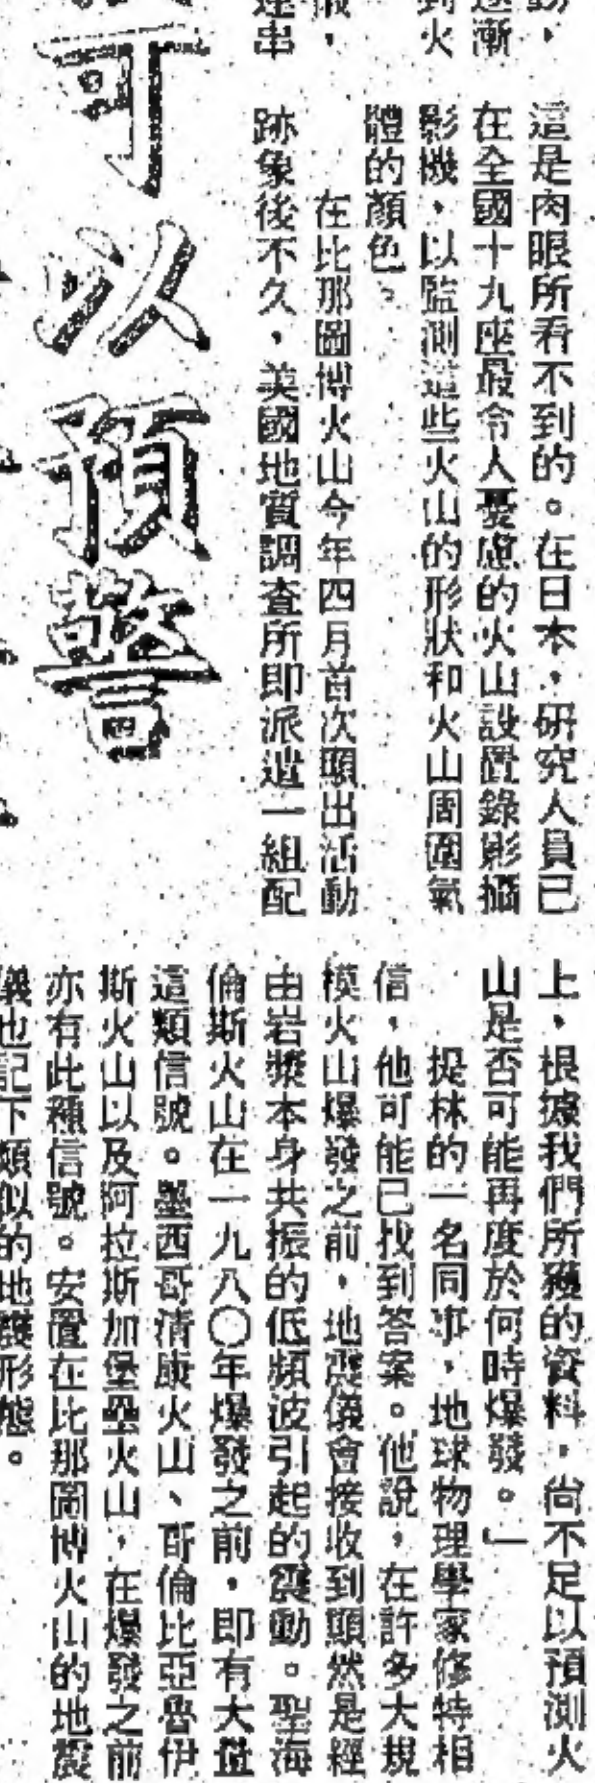 動，
逐漸
到火
連串
這是肉眼所看不到的。在日本，研究人員已
在全國十九座最令人憂慮的火山設置錄影攝
影機，以監測這些火山的形狀和火山周圍氣
體的顏色。
在比那圖博火山今年四月首次顯出活動
跡象後不久，美國地質調查所即派遣一組配
可以預警
上，根據我們所獲的資料，尚不足以預測火
山是否可能再度於何時爆發。」
提林的一名同事，地球物理學家修特相
信，他可能已找到答案。他說，在許多大規
模火山爆發之前，地震儀會接收到顯然是經
由岩漿本身共振的低頻波引起的震動。聖海
倫斯火山在一九八〇年爆發之前，即有大量
這類信號。墨西哥清康火山、哥倫比亞魯伊
斯火山以及阿拉斯加堡壘火山，在爆發之前
亦有此種信號。安置在比那圖博火山的地震
儀也記下類似的地震形態。